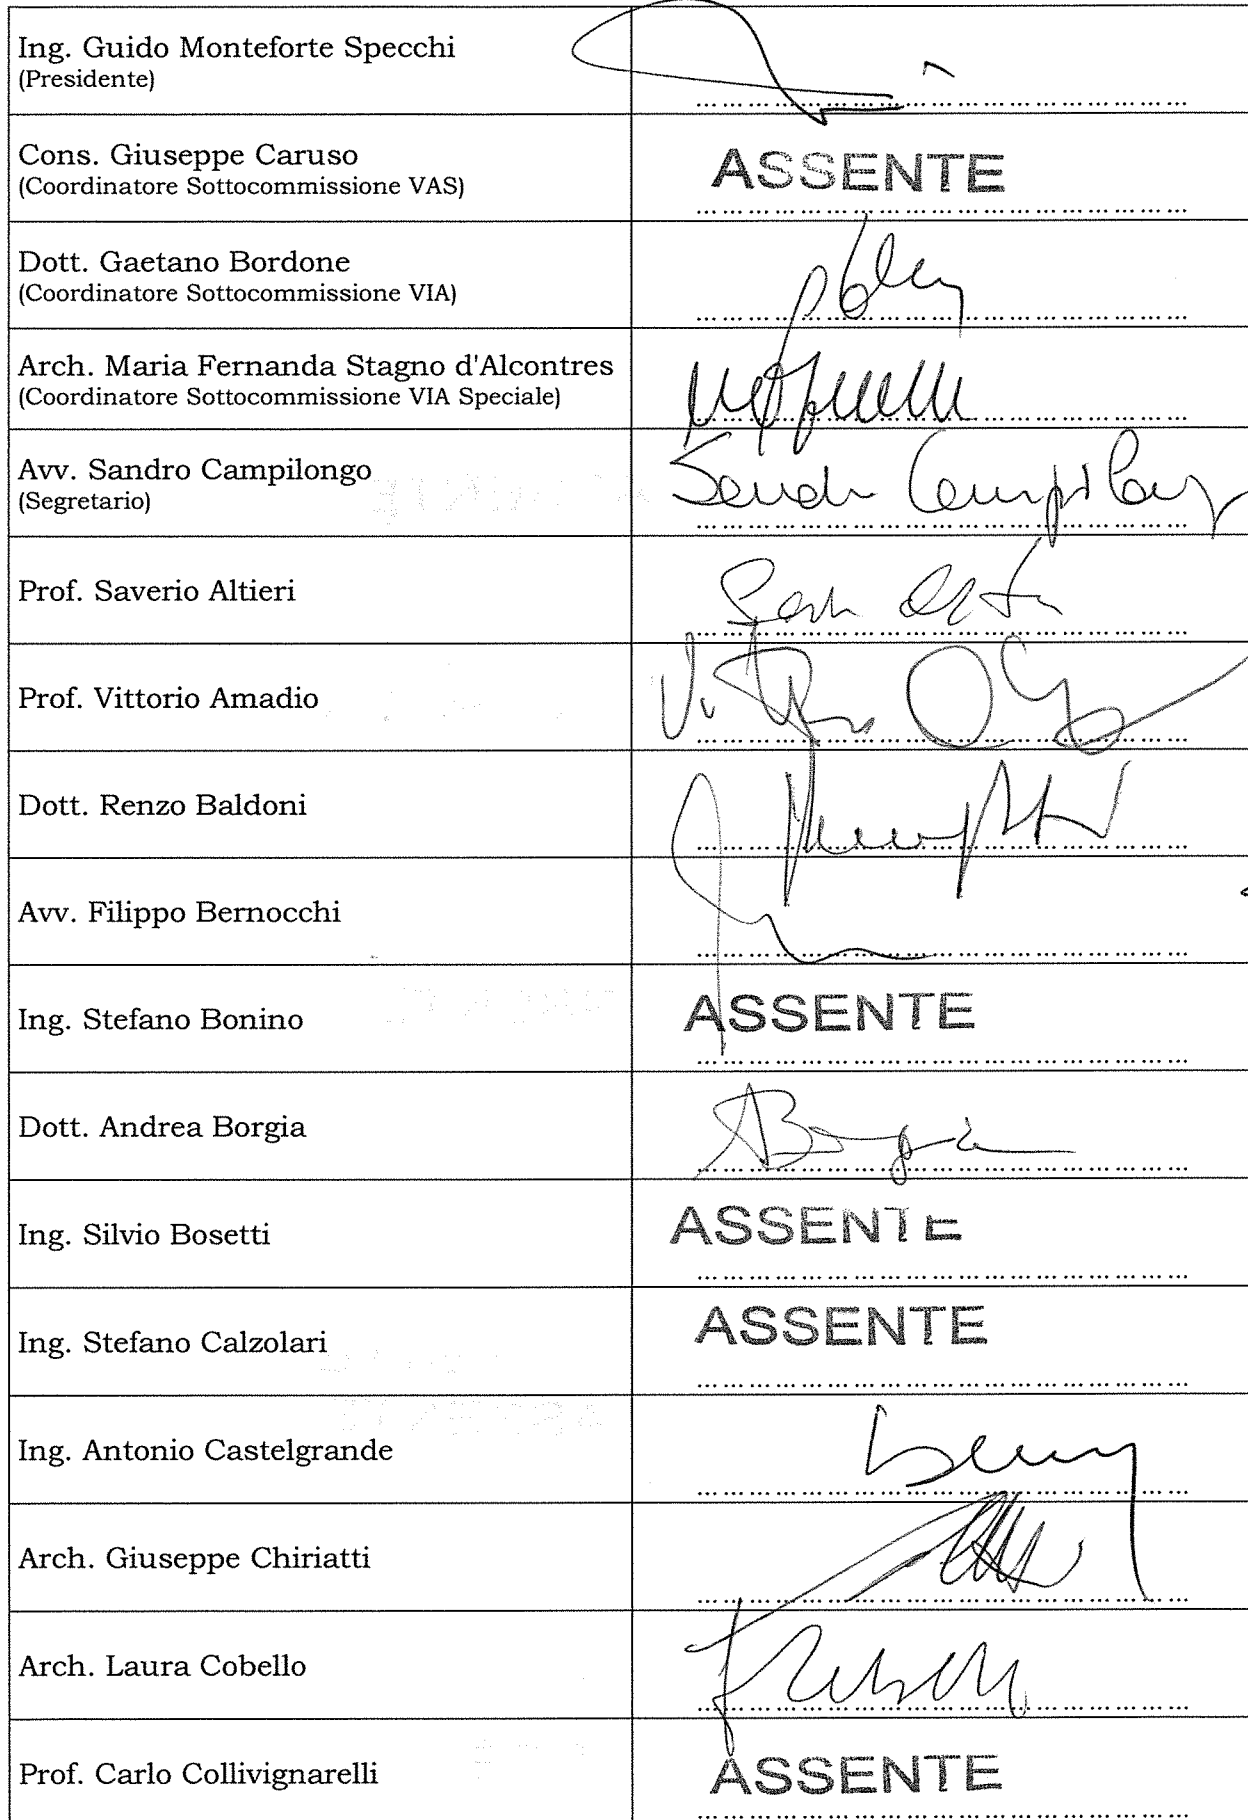 Ing. Guido Monteforte Specchi
(Presidente)
Cons. Giuseppe Caruso
(Coordinatore Sottocommissione VAS)
ASSENTE
Dott. Gaetano Bordone
(Coordinatore Sottocommissione VIA)
Arch. Maria Fernanda Stagno d'Alcontres
(Coordinatore Sottocommissione VIA Speciale)
Avv. Sandro Campilongo
(Segretario)
Sandro Campilongo
Prof. Saverio Altieri
Prof. Vittorio Amadio
Dott. Renzo Baldoni
Avv. Filippo Bernocchi
Ing. Stefano Bonino
ASSENTE
Dott. Andrea Borgia
ABorgia
Ing. Silvio Bosetti
ASSENTE
Ing. Stefano Calzolari
ASSENTE
Ing. Antonio Castelgrande
Arch. Giuseppe Chiriatti
Arch. Laura Cobello
Prof. Carlo Collivignarelli
ASSENTE